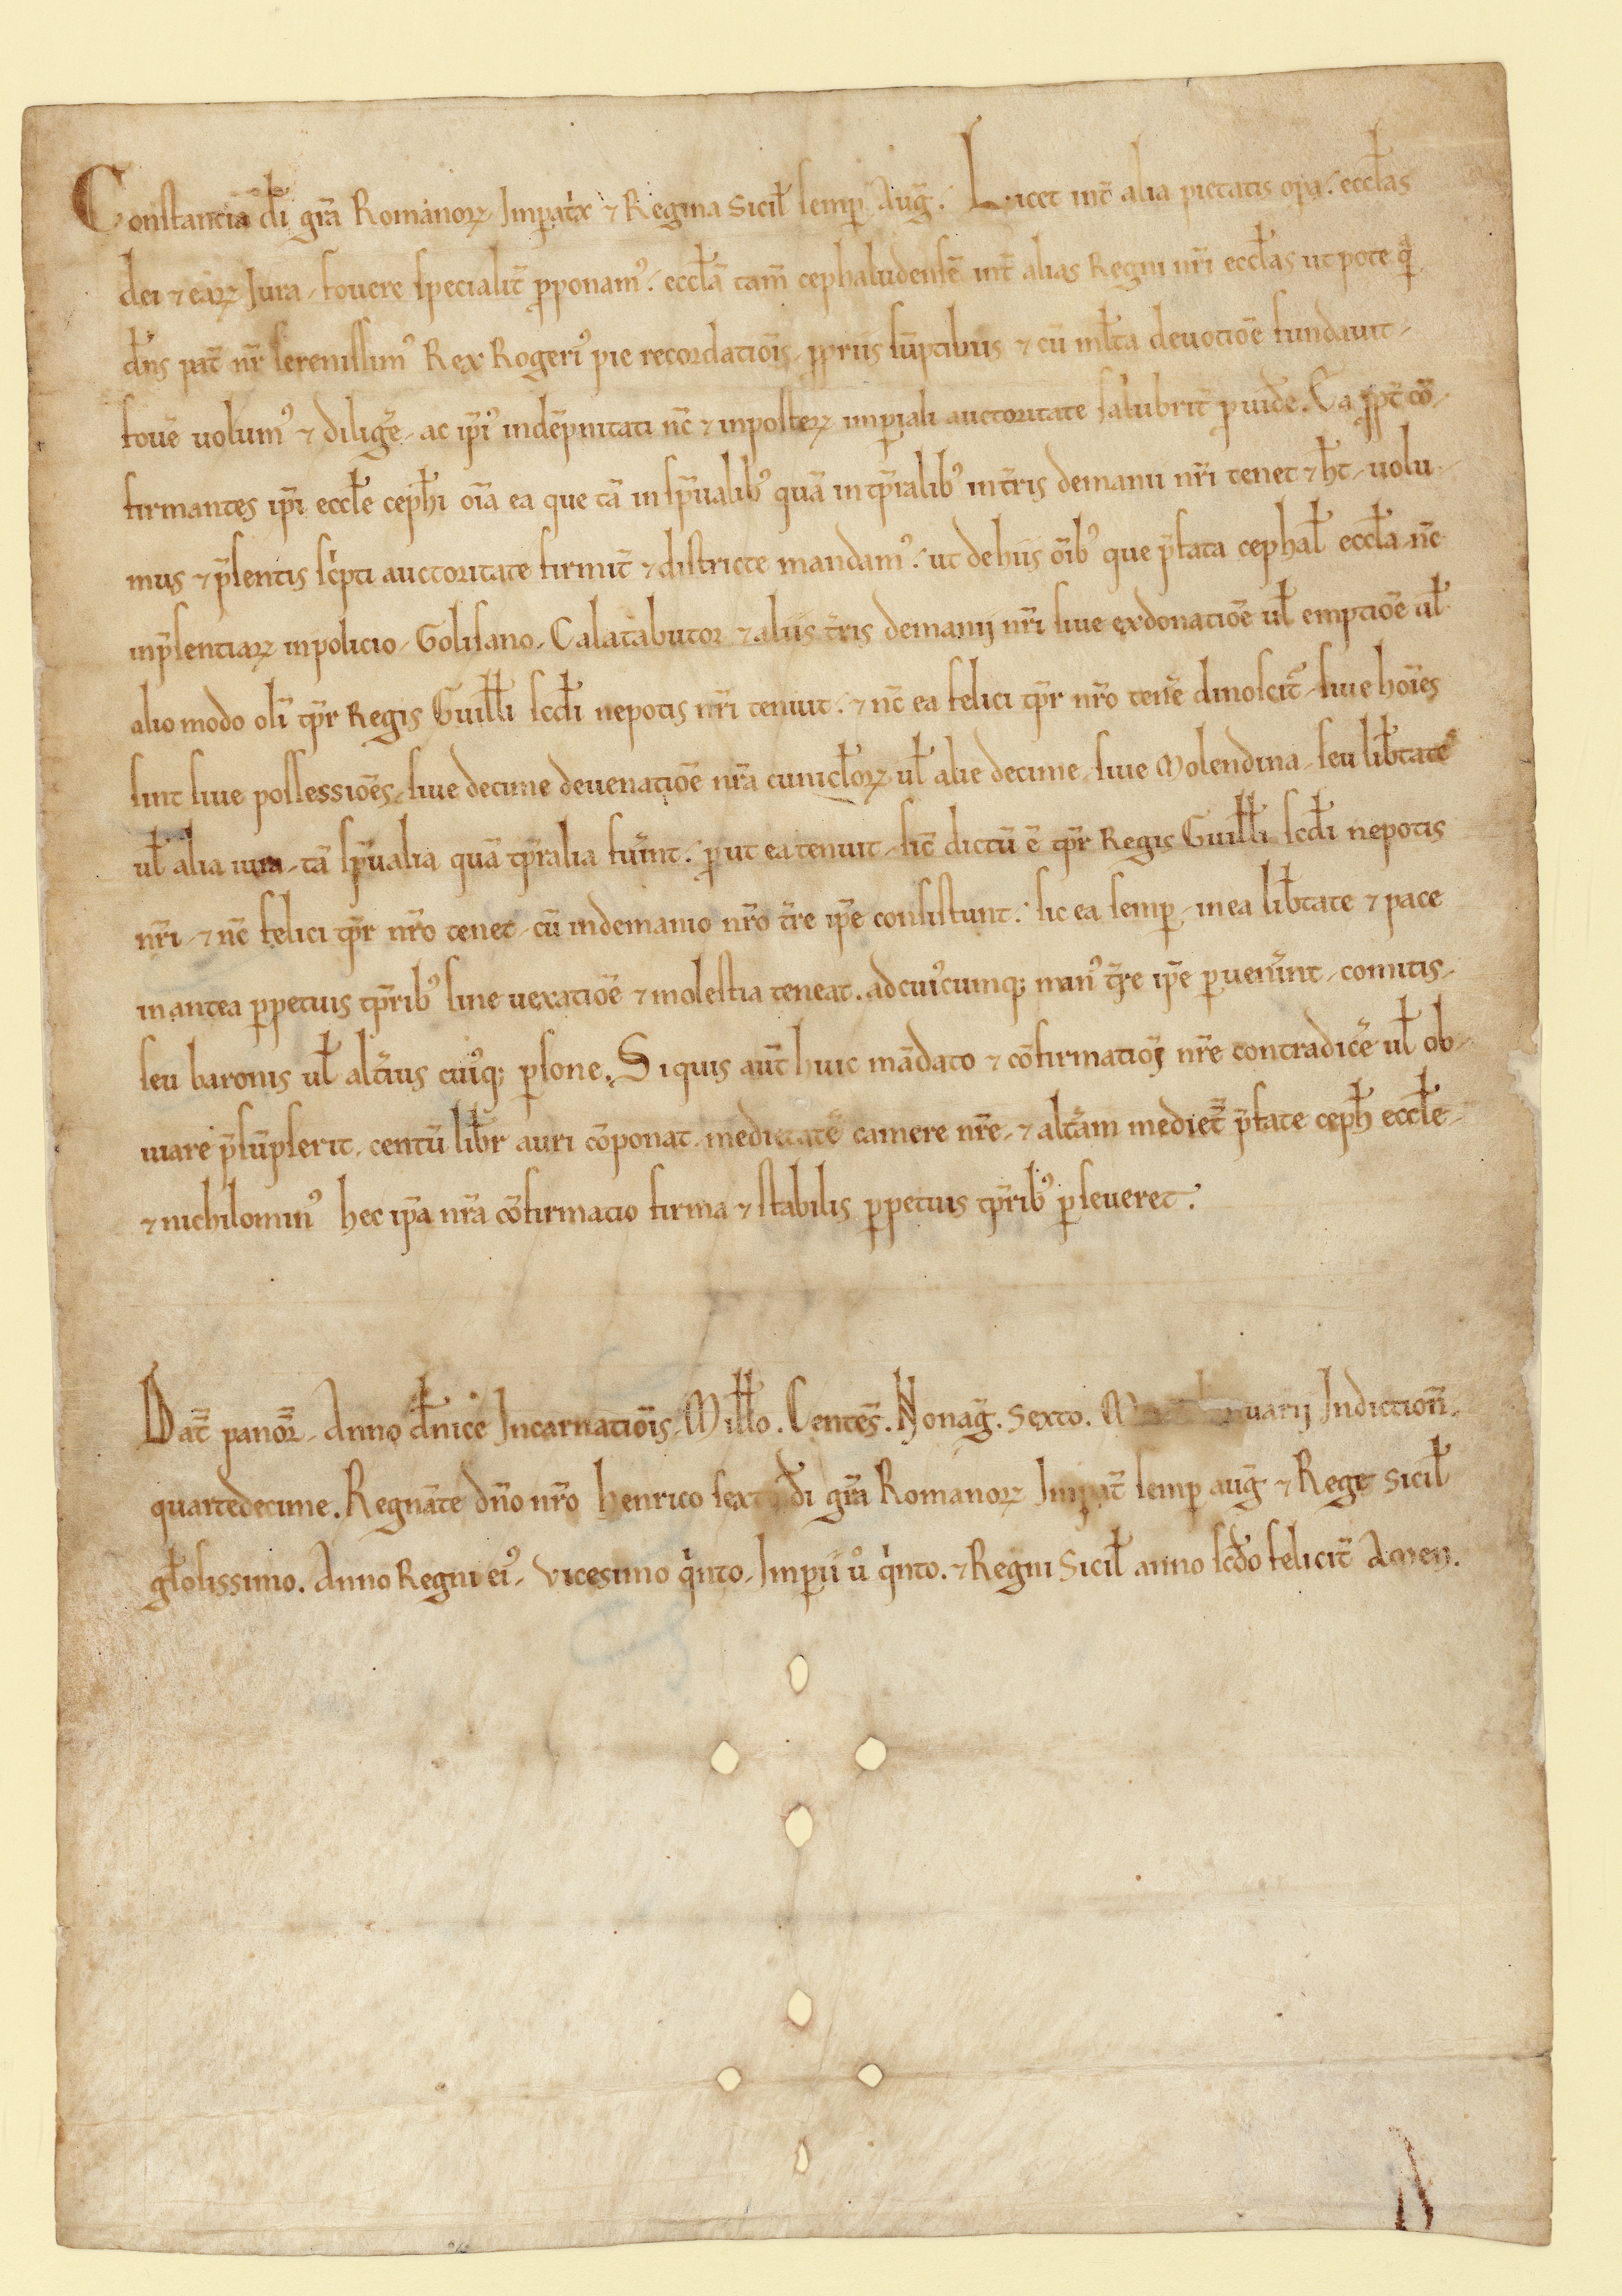 Constancia di gr̄a Romanoꝝ Imꝑatͥx ⁊ Regina Sicil̄ semꝑ Aug̃. Licet int̄ alia pietatis oꝑa. eccl̄as
dei ⁊ eaꝝ Jura, fouere specialit̄ ꝓponamꝰ. eccl̄ā tam̄ cephaludensē int̄ alias Regni nr̄i eccl̄as ut pote qᵃ
dn̄s pat̄ nr̄ serenissimꝰ Rex Rogeriꝰ pie recordatiōis, ꝓpriis sūptibus ⁊ cū ml̄ta deuotiōe fundauit,
fouē uolumꝰ ⁊ diligē, ac ip̄iꝰ indēpnitati nc̄ ⁊ inposteꝝ imꝑiali auctoritate salubrit̄ ꝓuidē. Ea ꝓpt̄ cō,
firmantes ip̄i eccl̄e ceph̄i oīa ea que tā in sp̄ualibꝰ quā in tp̄ralibꝰ in t̄ris demanii nr̄i tenet ⁊ h̄t, uolu,
mus ⁊ p̄sentis sc̄pti auctoritate firmit̄ ⁊ districte mandamꝰ. ut dehiis oībꝰ que p̄fata cephal̄ eccl̄a nc̄
inp̄sentiaꝝ inpolicio, Golisano, Calatabutor ⁊ aliis t̄ris demanij nr̄i siue exdonatiōe ul̄ emptiōe ul̄
alio modo oli̅ tp̄r Regis Guill̄i scd̄i nepotis nr̄i tenuit. ⁊ nc̄ ea felici tp̄r nr̄o tenē dinoscit̄, siue hoīes
sint siue possessiōes, siue decime deuenatiōe nr̄a cunicl̄oꝝ ul̄ alie decime, siue Molendina, seu lib̄tate
ul̄ alia iura, tā sp̄ualia quā tp̄ralia fuīnt. ꝓut ea tenuit, sic̄ dictū ē tp̄r Regis Guill̄i scd̄i nepotis
nr̄i, ⁊ nc̄ felici tp̄r nr̄o tenet, cū indemanio nr̄o t̄re ip̄e consistunt. sic ea semꝑ, in ea lib̄tate ⁊ pace
inantea ꝑpetuis tp̄ribꝰ sine uexatiōe ⁊ molestia teneat. adcuiꝰcumqꝫ manꝰ t̄re ip̄e ꝑuenīnt, comitis,
seu baronis ul̄ alt̄ius cuiꝰqꝫ ꝑsone. Siquis aut̄ huic mādato ⁊ cōfirmatiōj nr̄e contradicē ul̄ ob,
uiare p̄sūpserit, centū libr̄ auri cōponat, medietatē camere nr̄e, ⁊ alt̄am mediet̄ p̄fate ceph̄ eccl̄e,
⁊ nichilominꝰ hec ip̄a nr̄a cōfirmatio firma ⁊ stabilis ꝑpetuis tp̄ribꝰ ꝑseueret.
Dat̄ panor̄, Anno dn̄ice Incarnatiōis, Mill̄o. Centes̄. Nonag̃. Sexto. uarij Indiction̄,
quartedecime. Regnāte dn̄o nr̄o henrico sexto di gr̄a Romanoꝝ Imꝑat̄ semꝑ aug̃ ⁊ Rege Sicil̄
gl̄osissimo. Anno Regni eiꝰ, vicesimo qͥnto, Imꝑii uͦ qͥnto. ⁊ Regni Sicil̄ anno scd̄o felicit̄ Amen.